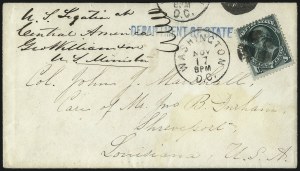 U.S. Legation at
Central America
Geo Williamson
U.S. Minister
DEPARTMENT OF STATE
8PM
D.C.
WASHINGTON
NOV
17
8PM
D.C.
Col. John J. Marshall,
Care of Mr. Jno B.
Shreveport,
Louisiana, U.S.A.